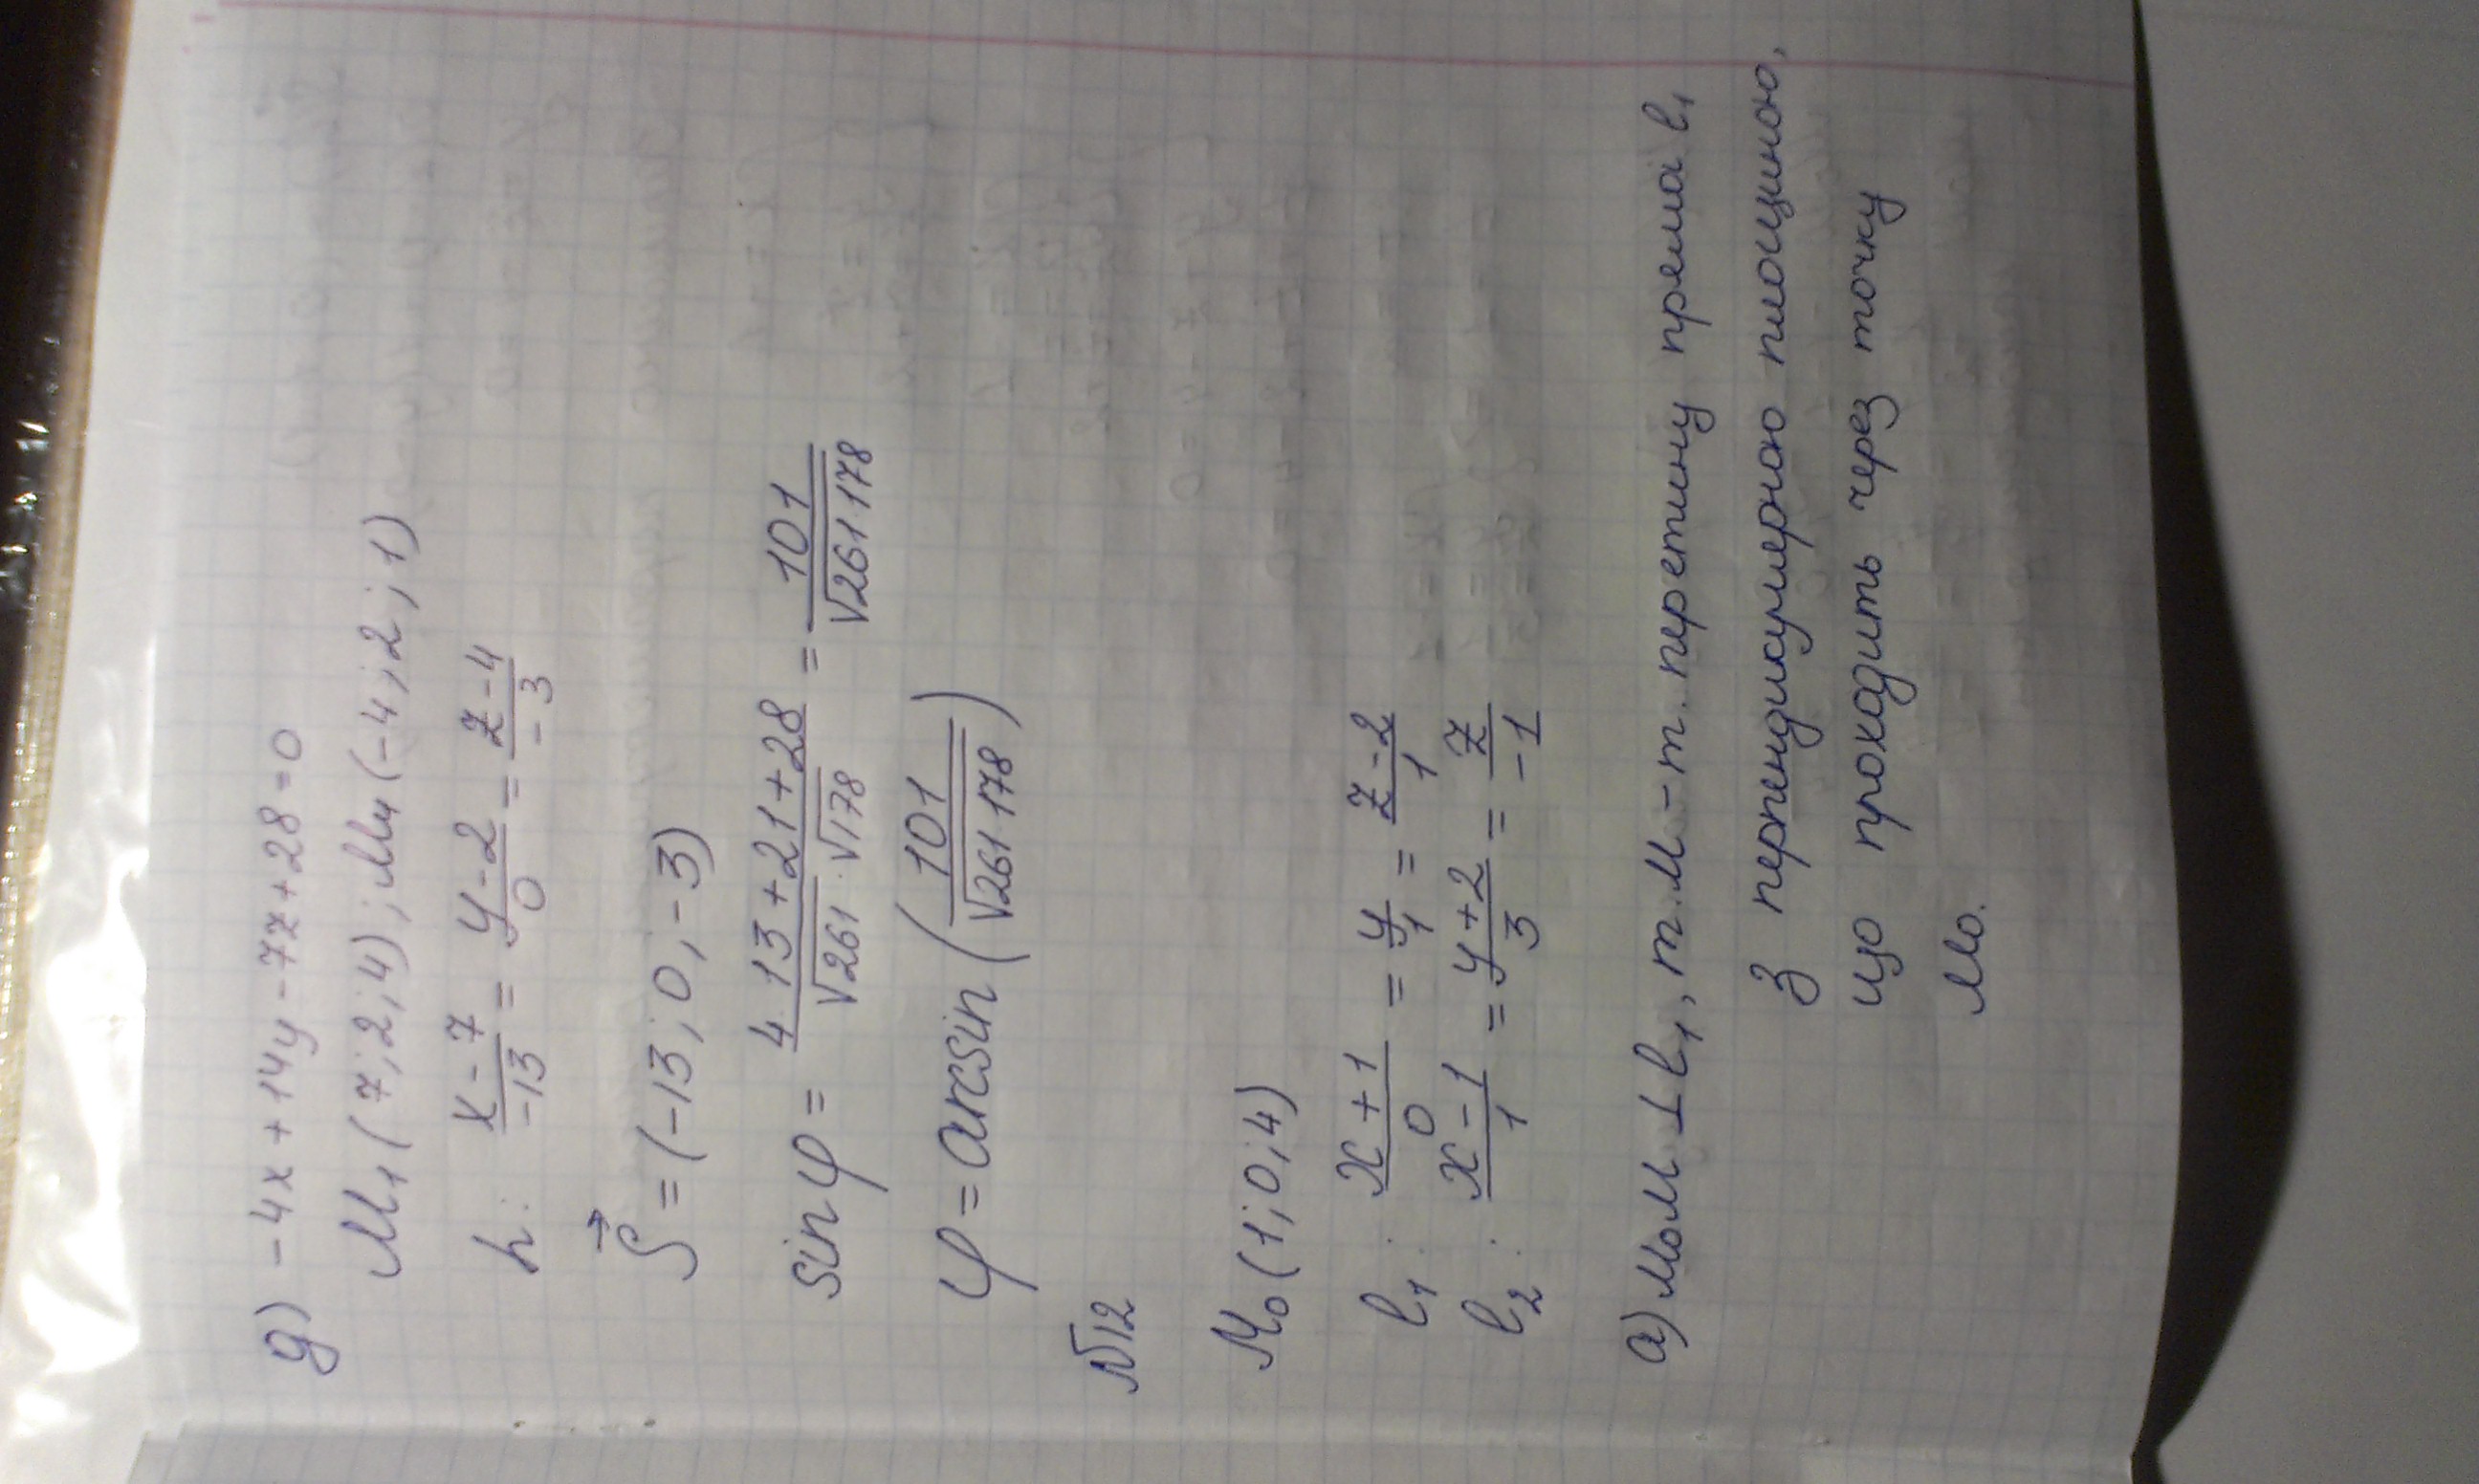 д) -4x + 14y - 7z + 28 = 0
M₁(7; 2; 4); M₄(-4; 2; 1)
h: (x-7)/-13 = (y-2)/0 = (z-4)/-3
S⃗ = (-13; 0, -3)
sin φ = (4·13+21+28)/(√261·√178) = 101/√(261·178)
φ = arcsin(101/√(261·178))
N12
M₀(1; 0; 4)
l₁: (x+1)/0 = y/1 = (z-2)/1
l₂: (x-1)/1 = (y+2)/3 = z/-1
а) M₀M ⊥ l₁, т.M - т. перетину прямої l₁
з перпендикулярною площиною,
що проходить через точку
M₀.